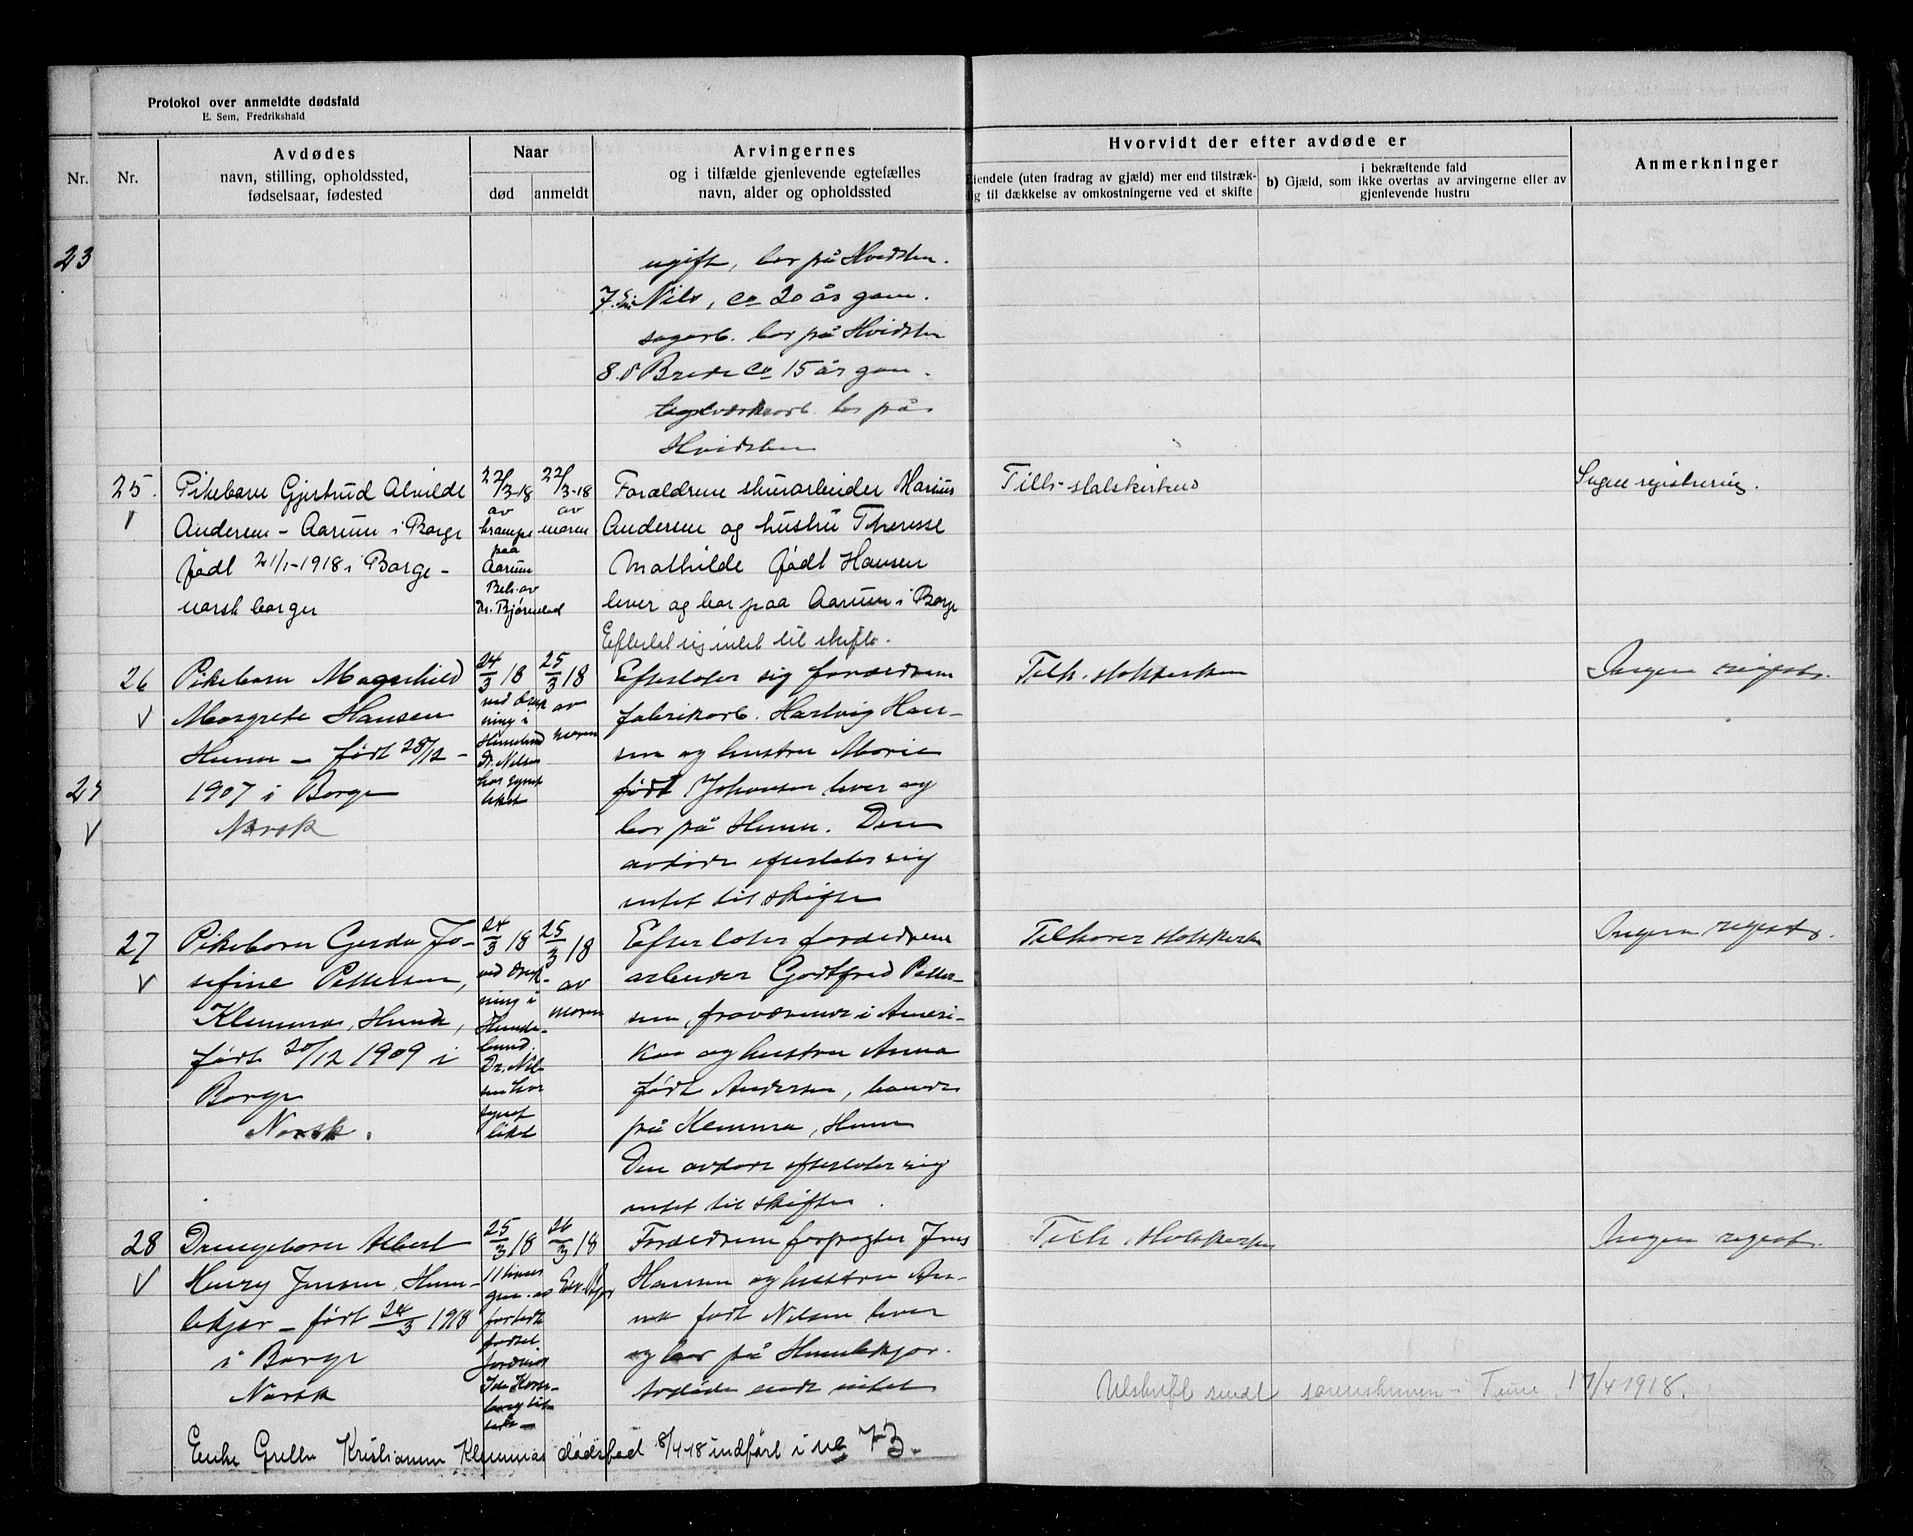 Protokol over anmeldte dødsfald
E. Sem, Fredrikshald
Nr.
Nr.
Avdødes
navn, stilling, opholdssted,
fødselsaar, fødested
Naar
død
anmeldt
Arvingernes
og i tilfælde gjenlevende egtefælles
navn, alder og opholdssted
Hvorvidt der efter avdøde er
iendele (uten fradrag av gjæld) mer end tilstræk-
ig til dækkelse av omkostningerne ved et skifte
i bekræftende fald
b) Gjæld, som ikke overtas av arvingerne eller av
gjenlevende hustru
Anmerkninger
23
ugift, bor på Hvidsten.
7. Nils, ca 20 år gam.
sagarb. bor på Hvidsten
8. Brede ca 15 år gam.
teglverksarb. bor på
Hvidsten
25.
V
Pikebarn Gjertrud Alvilde
Andersen - Aarum i Borge
født 21/1-1918 i Borge -
norsk borger
22/3-18
av
krampe
paa
Aarum
Beh. av
Dr. Bjørnstad
22/3-18
av
moren
Forældrene murarbeider Marius
Andersen og hustru Therese
Mathilde født Hansen
lever og bor paa Aarum i Borge
Efterlot sig intet til skifte.
Tilh. statskirken
Ingen registrering.
26
V
Pikebarn Magnhild
Margrete Hansen
Hunn - født 28/12 -
1907 i Borge
Norsk
24/3 18
ved druk-
ning i
Hundebund
Dr. Nilsen
har synet
liket
25/3 18
av
moren
Efterlater sig forældrene
fabrikarb. Hartvig Han-
sen og hustru Marie
født Johansen lever og
bor på Hunn. Den
avdøde efterlater sig
intet til skifte
Tilh. statskirken
Ingen registr.
24
V
27
V
Pikebarn Gerda Jo-
sefine Pettersen,
Klemma, Hunn,
født 20/12 1909 i
Borge
Norsk.
24/3 18
ved druk-
ning i
Hunde-
bund.
Dr. Nil-
sen har
synet
liket
25/3 18
av
moren
Efterlater forældrene
arbeider Godtfred Petter-
sen, fraværende i Ameri-
ka og hustru Anna
født Andersen, boende
på Klemma, Hunn
Den avdøde efterlater sig
intet til skifte.
Tilhører statskirken
Ingen registr.
28
V
Drengebarn Albert
Henry Jensen, Hum-
lekjær - født 24/3 1918
i Borge
Norsk
25/3 18
26/3 18
Forældrene forpagter Jens
Hansen og hustru An-
na født Nilsen lever
og bor på Humlekjær.
Avdøde eiede intet
Tilh. Statskirken
Ingen registr.
Utskrift sendt sorenskriveren i Tune 17/4 1918.
Enke Grethe Kristianne Klemmas dødsfald 8/4-18 indført i no 73.